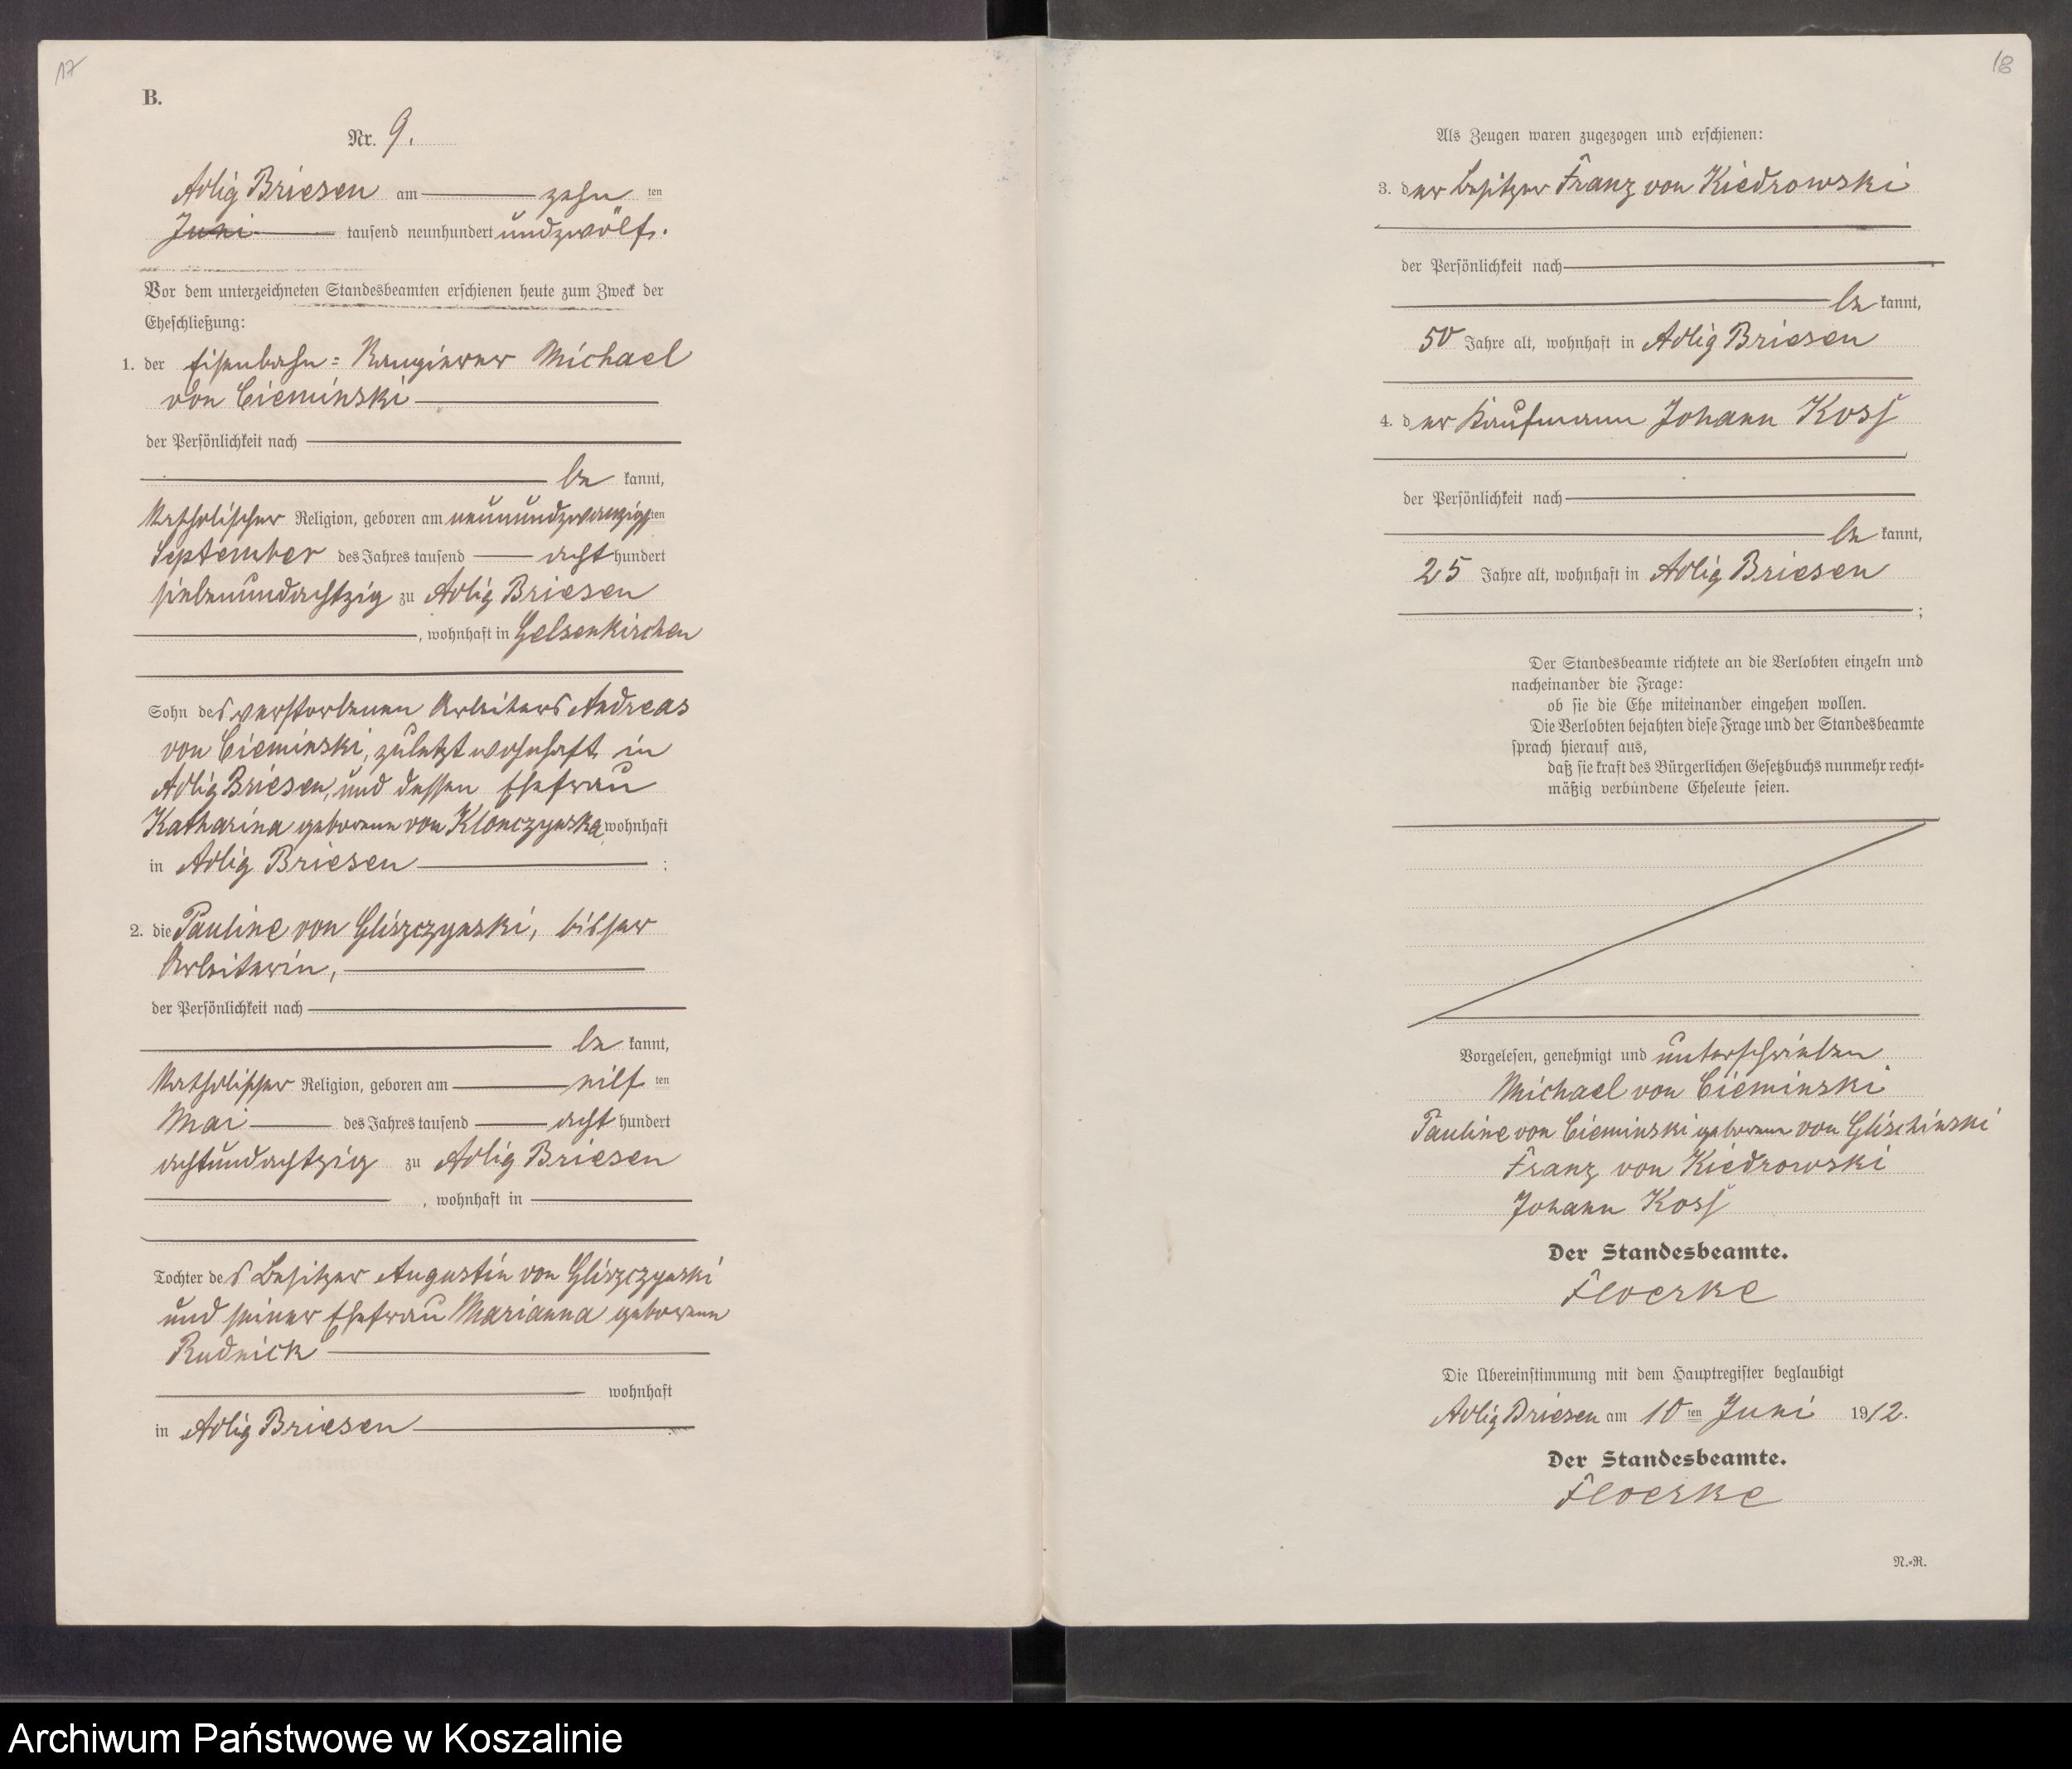 17
B.
Nr. 9.
Adlig Briesen am zehn ten
Juni tausend neunhundert undzwölf.
Vor dem unterzeichneten Standesbeamten erschienen heute zum Zweck der
Eheschließung:
1. der Eisenbahn= Rangierer Michael
von Cieminski
der Persönlichkeit nach
be kannt,
katholischer Religion, geboren am neunundzwanzigsten
September des Jahres tausend acht hundert
siebenundachtzig zu Adlig Briesen
, wohnhaft in Gelsenkirchen
Sohn des verstorbenen Arbeiters Andreas
von Cieminski, zuletzt wohnhaft in
Adlig Briesen, und dessen Ehefrau
Katharina geborene von Klonczynska wohnhaft
in Adlig Briesen ;
2. die Pauline von Gliszczynski, bisher
Arbeiterin,
der Persönlichkeit nach
be kannt,
katholischer Religion, geboren am eilf ten
Mai des Jahres tausend acht hundert
achtundachtzig zu Adlig Briesen
, wohnhaft in
Tochter des Besitzer Augustin von Gliszczynski
und seiner Ehefrau Marianna geborene
Rudnick
wohnhaft
in Adlig Briesen
18
Als Zeugen waren zugezogen und erschienen:
3. der Besitzer Franz von Kiedrowski
der Persönlichkeit nach
be kannt,
50 Jahre alt, wohnhaft in Adlig Briesen
4. der Kaufmann Johann Koss
der Persönlichkeit nach
be kannt,
25 Jahre alt, wohnhaft in Adlig Briesen
;
Der Standesbeamte richtete an die Verlobten einzeln und
nacheinander die Frage:
ob sie die Ehe miteinander eingehen wollen.
Die Verlobten bejahten diese Frage und der Standesbeamte
sprach hierauf aus,
daß sie kraft des Bürgerlichen Gesetzbuchs nunmehr recht-
mäßig verbundene Eheleute seien.
Vorgelesen, genehmigt und unterschrieben
Michael von Cieminski
Pauline von Cieminski geborene von Glischinski
Franz von Kiedrowski
Johann Koss
Der Standesbeamte.
Floerke
Die Übereinstimmung mit dem Hauptregister beglaubigt
Adlig Briesen am 10 ten Juni 1912.
Der Standesbeamte.
Floerke
N.-R.
Archiwum Państwowe w Koszalinie